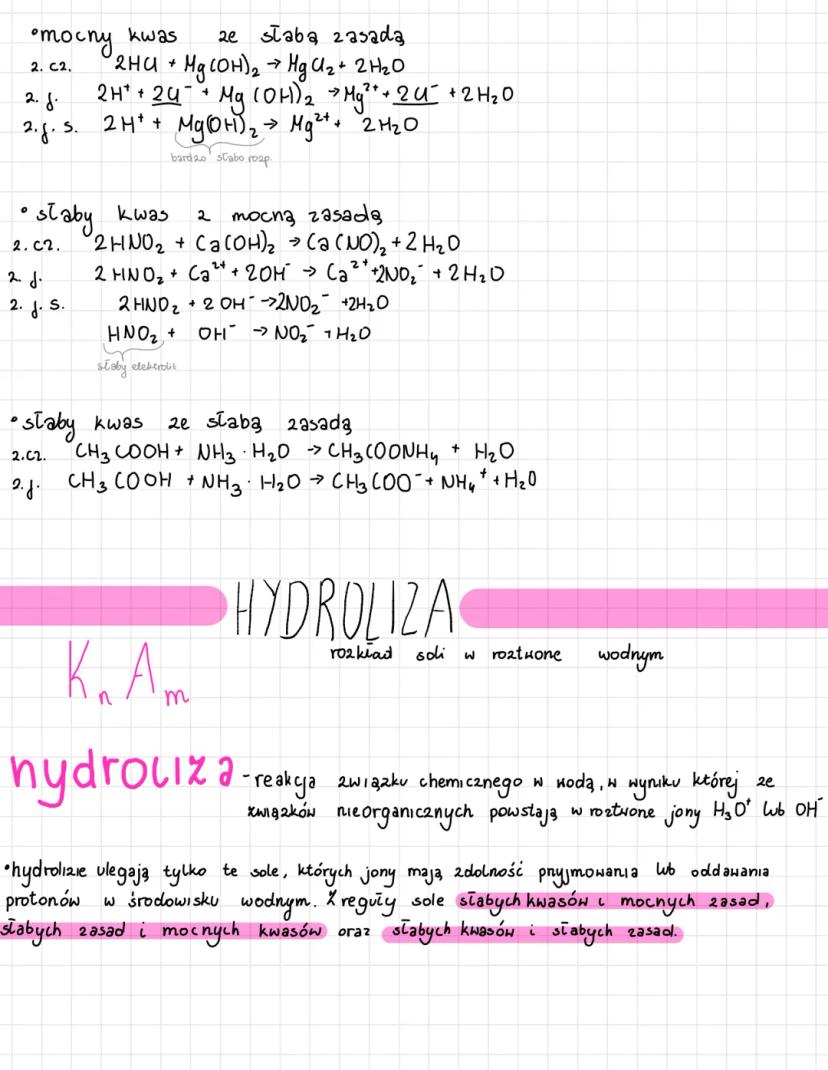 • mocny kwas ze słabą zasadą
z. cz. 2HCl + Mg(OH)₂ → MgCl₂ + 2H₂O
z. j. 2H⁺ + 2Cl⁻ + Mg(OH)₂ → Mg²⁺ + 2Cl⁻ + 2H₂O
z. j. s. 2H⁺ + Mg(OH)₂ → Mg²⁺ + 2H₂O
bardzo słabo rozp.
• słaby kwas z mocną zasadą
z. cz. 2HNO₂ + Ca(OH)₂ → Ca(NO)₂ + 2H₂O
z. j. 2HNO₂ + Ca²⁺ + 2OH⁻ → Ca²⁺ + 2NO₂⁻ + 2H₂O
z. j. s. 2HNO₂ + 2OH⁻ → 2NO₂⁻ + 2H₂O
HNO₂ + OH⁻ → NO₂⁻ + H₂O
słaby elektrolit
• słaby kwas ze słabą zasadą
z.cz. CH₃COOH + NH₃ · H₂O → CH₃COONH₄ + H₂O
z.j. CH₃COOH + NH₃ · H₂O → CH₃COO⁻ + NH₄⁺ + H₂O
HYDROLIZA
rozkład soli w roztworze wodnym
KₙAₘ
hydroliza - reakcja związku chemicznego w wodą, w wyniku której ze
związków nieorganicznych powstają w roztworze jony H₃O⁺ lub OH⁻
• hydrolizie ulegają tylko te sole, których jony mają zdolność przyjmowania lub oddawania
protonów w środowisku wodnym. Z reguły sole słabych kwasów i mocnych zasad,
słabych zasad i mocnych kwasów oraz słabych kwasów i słabych zasad.